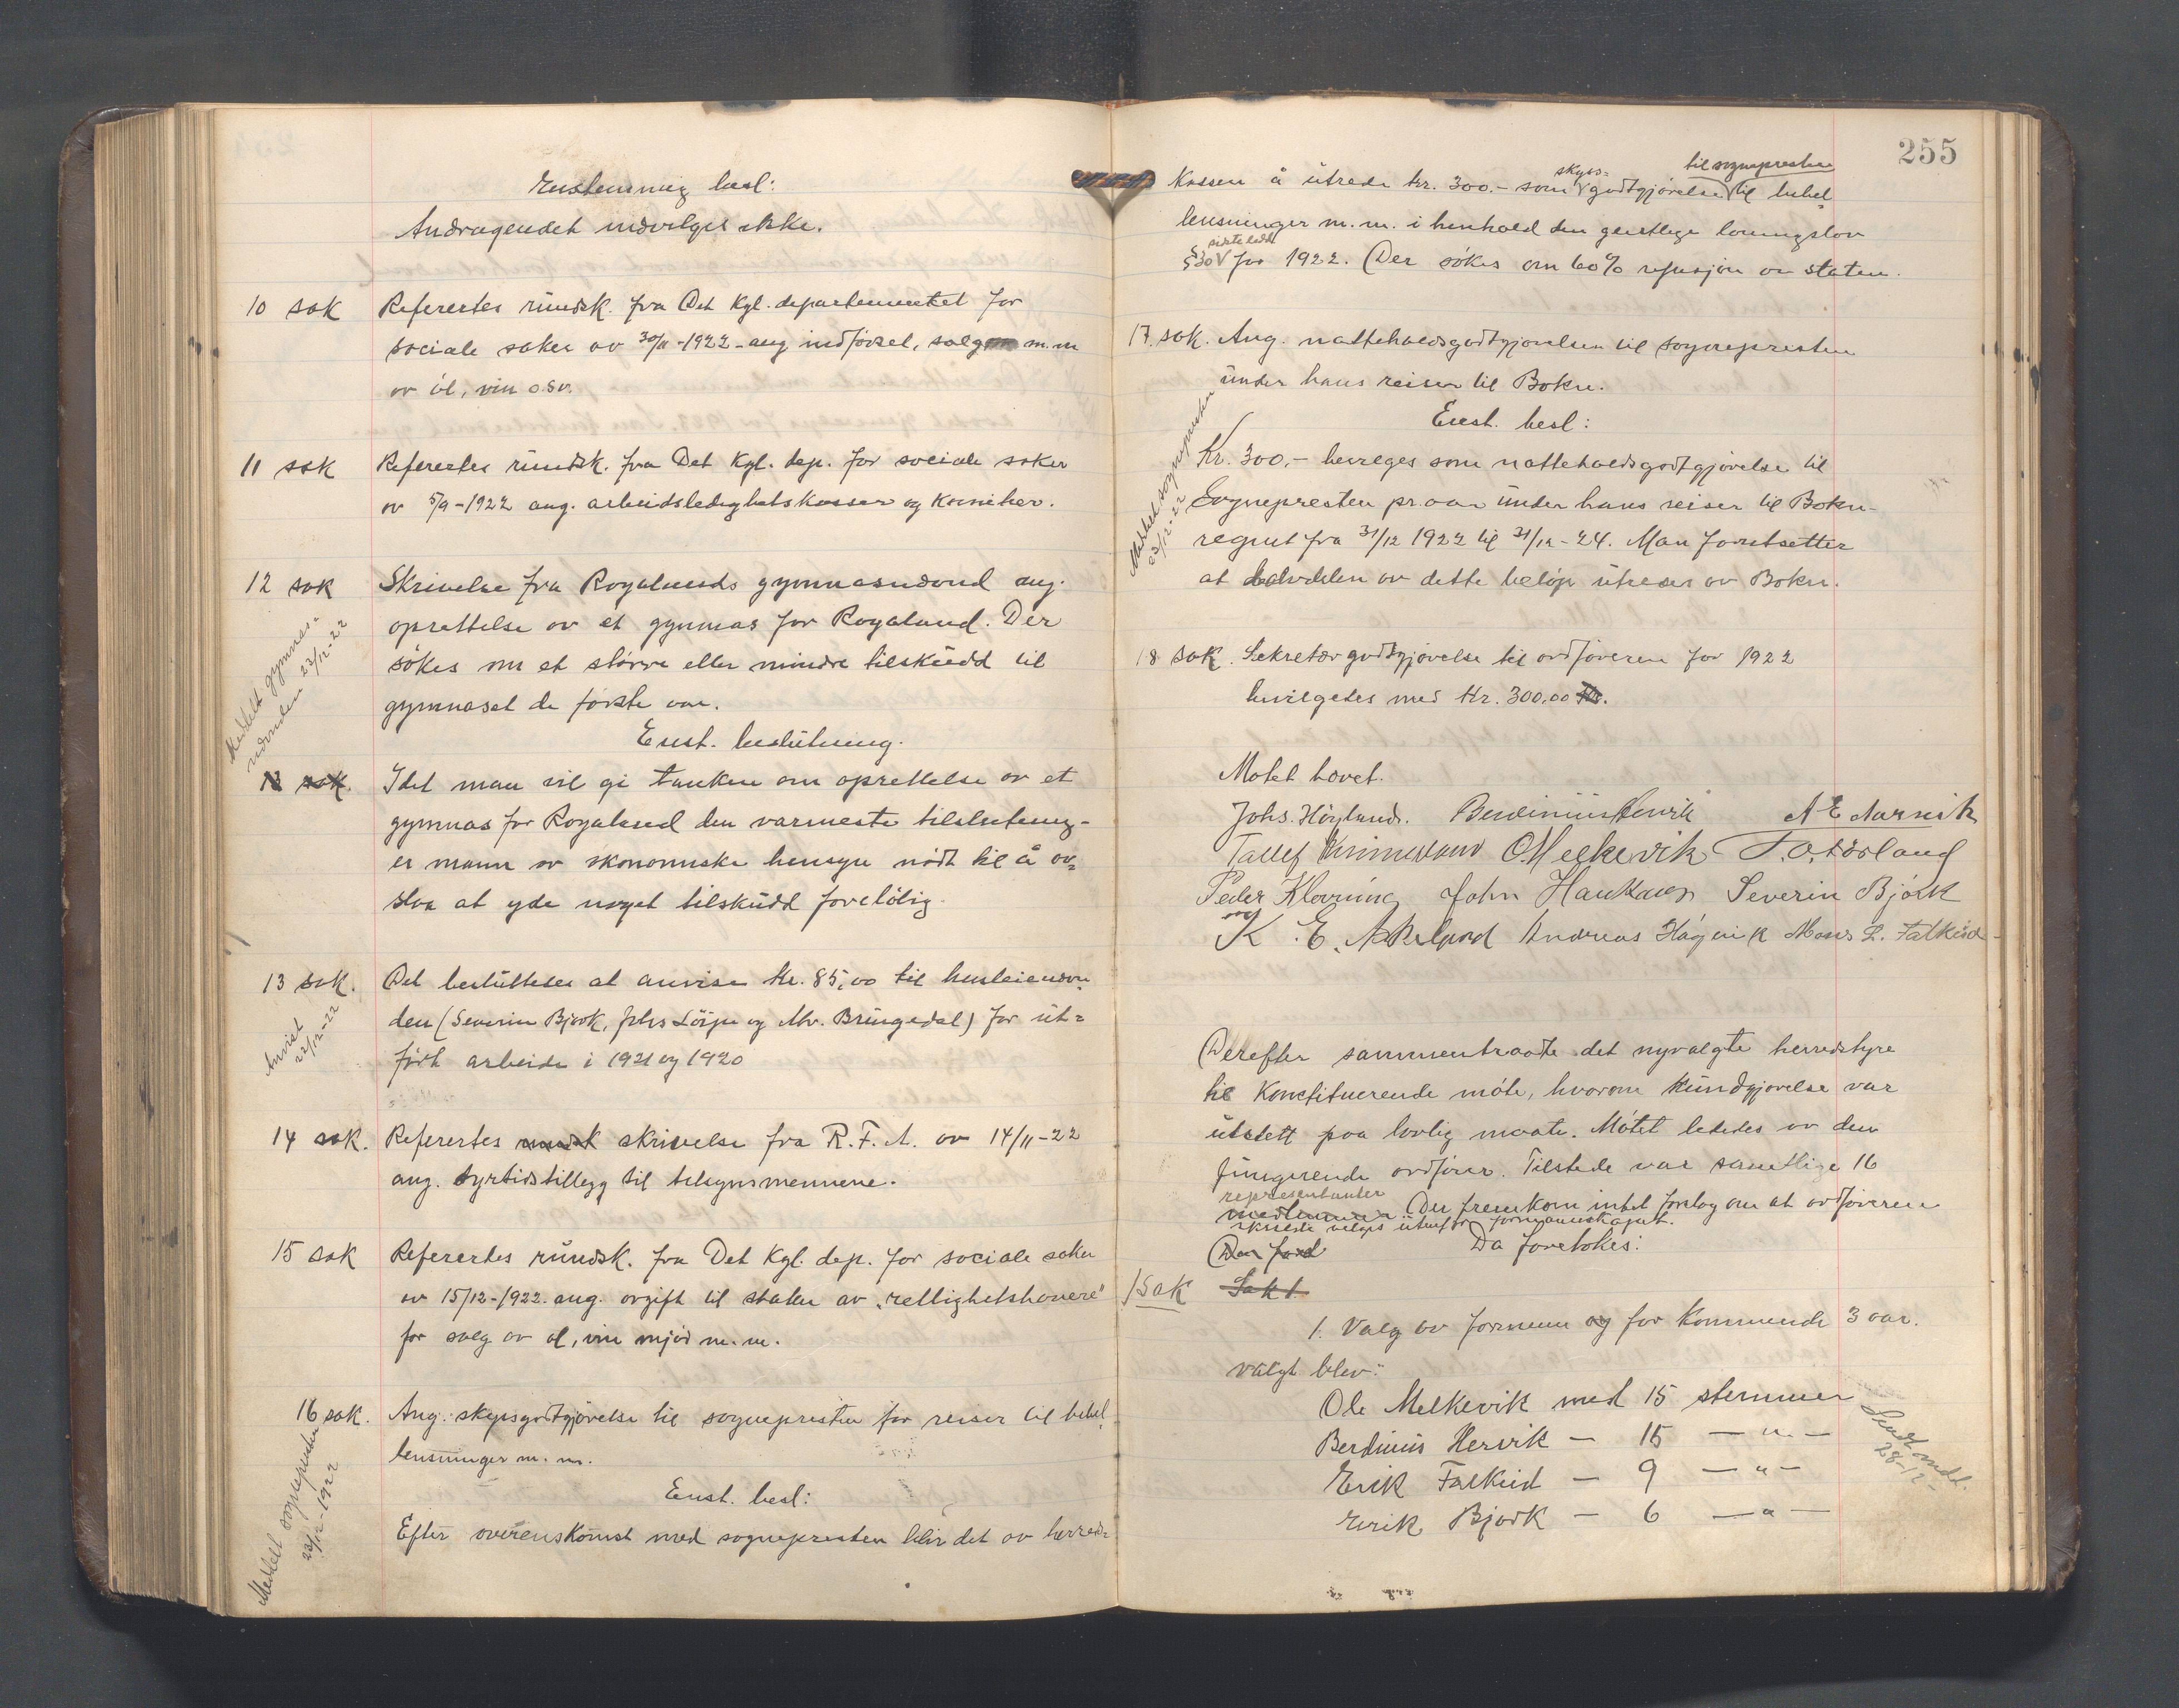 Enstemmig besl:
Andragendet indvilges ikke.
10 sak Referertes rundsk. fra Det Kgl. departementet for
sociale saker av 30/11-1922 - ang indförsel, salg m.m
av öl, vin o.sv.
11 sak Referertes rundsk. fra Det Kgl. dep. for sociale saker
av 5/9-1922 ang. arbeidsledighetskasser og
12 sak Skrivelse fra Rogalands gymnasnevnd ang.
oprettelse av et gymnas for Rogaland. Der
sökes om et större eller mindre tilskudd til
gymnaset de förste aar.
Meddelt gymnas-
nevnden 23/12-22
Enst. beslutning.
13 sak. Idet man vil gi tanken om oprettelse av et
gymnas for Rogaland den varmeste tilslutning-
er mann av ökonomiske hensyn nödt til å av-
slaa at yde noget tilskudd forelöbig.
13 sak. Det besluttedes at anvise kr. 85,00 til husleienevn-
den (Severin Bjork, Johs Löge og Mv. Bringedal) for ut-
fört arbeide i 1921 og 1920
Anvist
22/12-22
14 sak. Referertes rundsk skrivelse fra R.F.A. av 14/11-22
ang. dyrtidstillegg til tilsynsmennene.
15 sak Referertes rundsk. fra Det Kgl. dep. for sociale saker
av 15/12-1922. ang. avgift til staten av „rettighetshavere"
for salg av öl, vin mjöd m.m.
16 sak. Ang. skyssgodtgjörelse til sognepresten for reiser til bibel-
lesninger m.m.
Meddelt sognepresten
23/12-1922
Enst. besl:
Efter overenskomst med sognepresten blir det av herreds-
255
skyss- til sognepresten
Kassen å utrede kr. 300.- som godtgjörelse til bibel-
lesninger m.m. i henhold den geistlige lönningslov
siste ledd
§30 for 1922. (Der sökes om 60% refusjon av staten.
17. sak. Ang. natteholdsgodtgjörelsen til sognepresten
under hans reiser til Bokn.
Enst. besl:
Kr. 300,- bevilges som natteholdsgodtgjörelse til
Sognepresten pr. aar under hans reiser til Bokn-
regnet fra 31/12 1922 til 31/12-24. Man forutsetter
at halvdelen av dette belöp utredes av Bokn.
Meddelt sognepresten
23/12-22
18 sak. Sekretærgodtgjörelse til ordföreren for 1922
bevilgetes med kr. 300,00
Mötet hævet.
Johs. Höglund. Berdinius Hervik A E Aarvik
Tallef Kinneland O Melkevik T. O. Förland
Peder Klovning John Haukaas Severin Bjórk
K. E. Andreas Hágevik Mons L. Falkeid
Derefter sammentraadte det nyvalgte herredstyre
til Konstituerende möte, hvorom kundgjörelse var
utstett paa lovlig maate. Mötet lededes av den
fungerende ordförer. Tilstede var samtlige 16
representanter
medlemmer Der fremkom intet forslag om at ordföreren
skulde velges utenfor formannskapet.
Der ford Da foretokes:
1 Sak Sak 1.
1. Valg av formenn og for kommende 3 aar.
Valgt blev:
Ole Melkevik med 15 stemmer
Berdinius Hervik — 15 — " —
Erik Falkeid — 9 — " —
Erik Bjork — 6 — " —
Sendt amdt.
28-12-